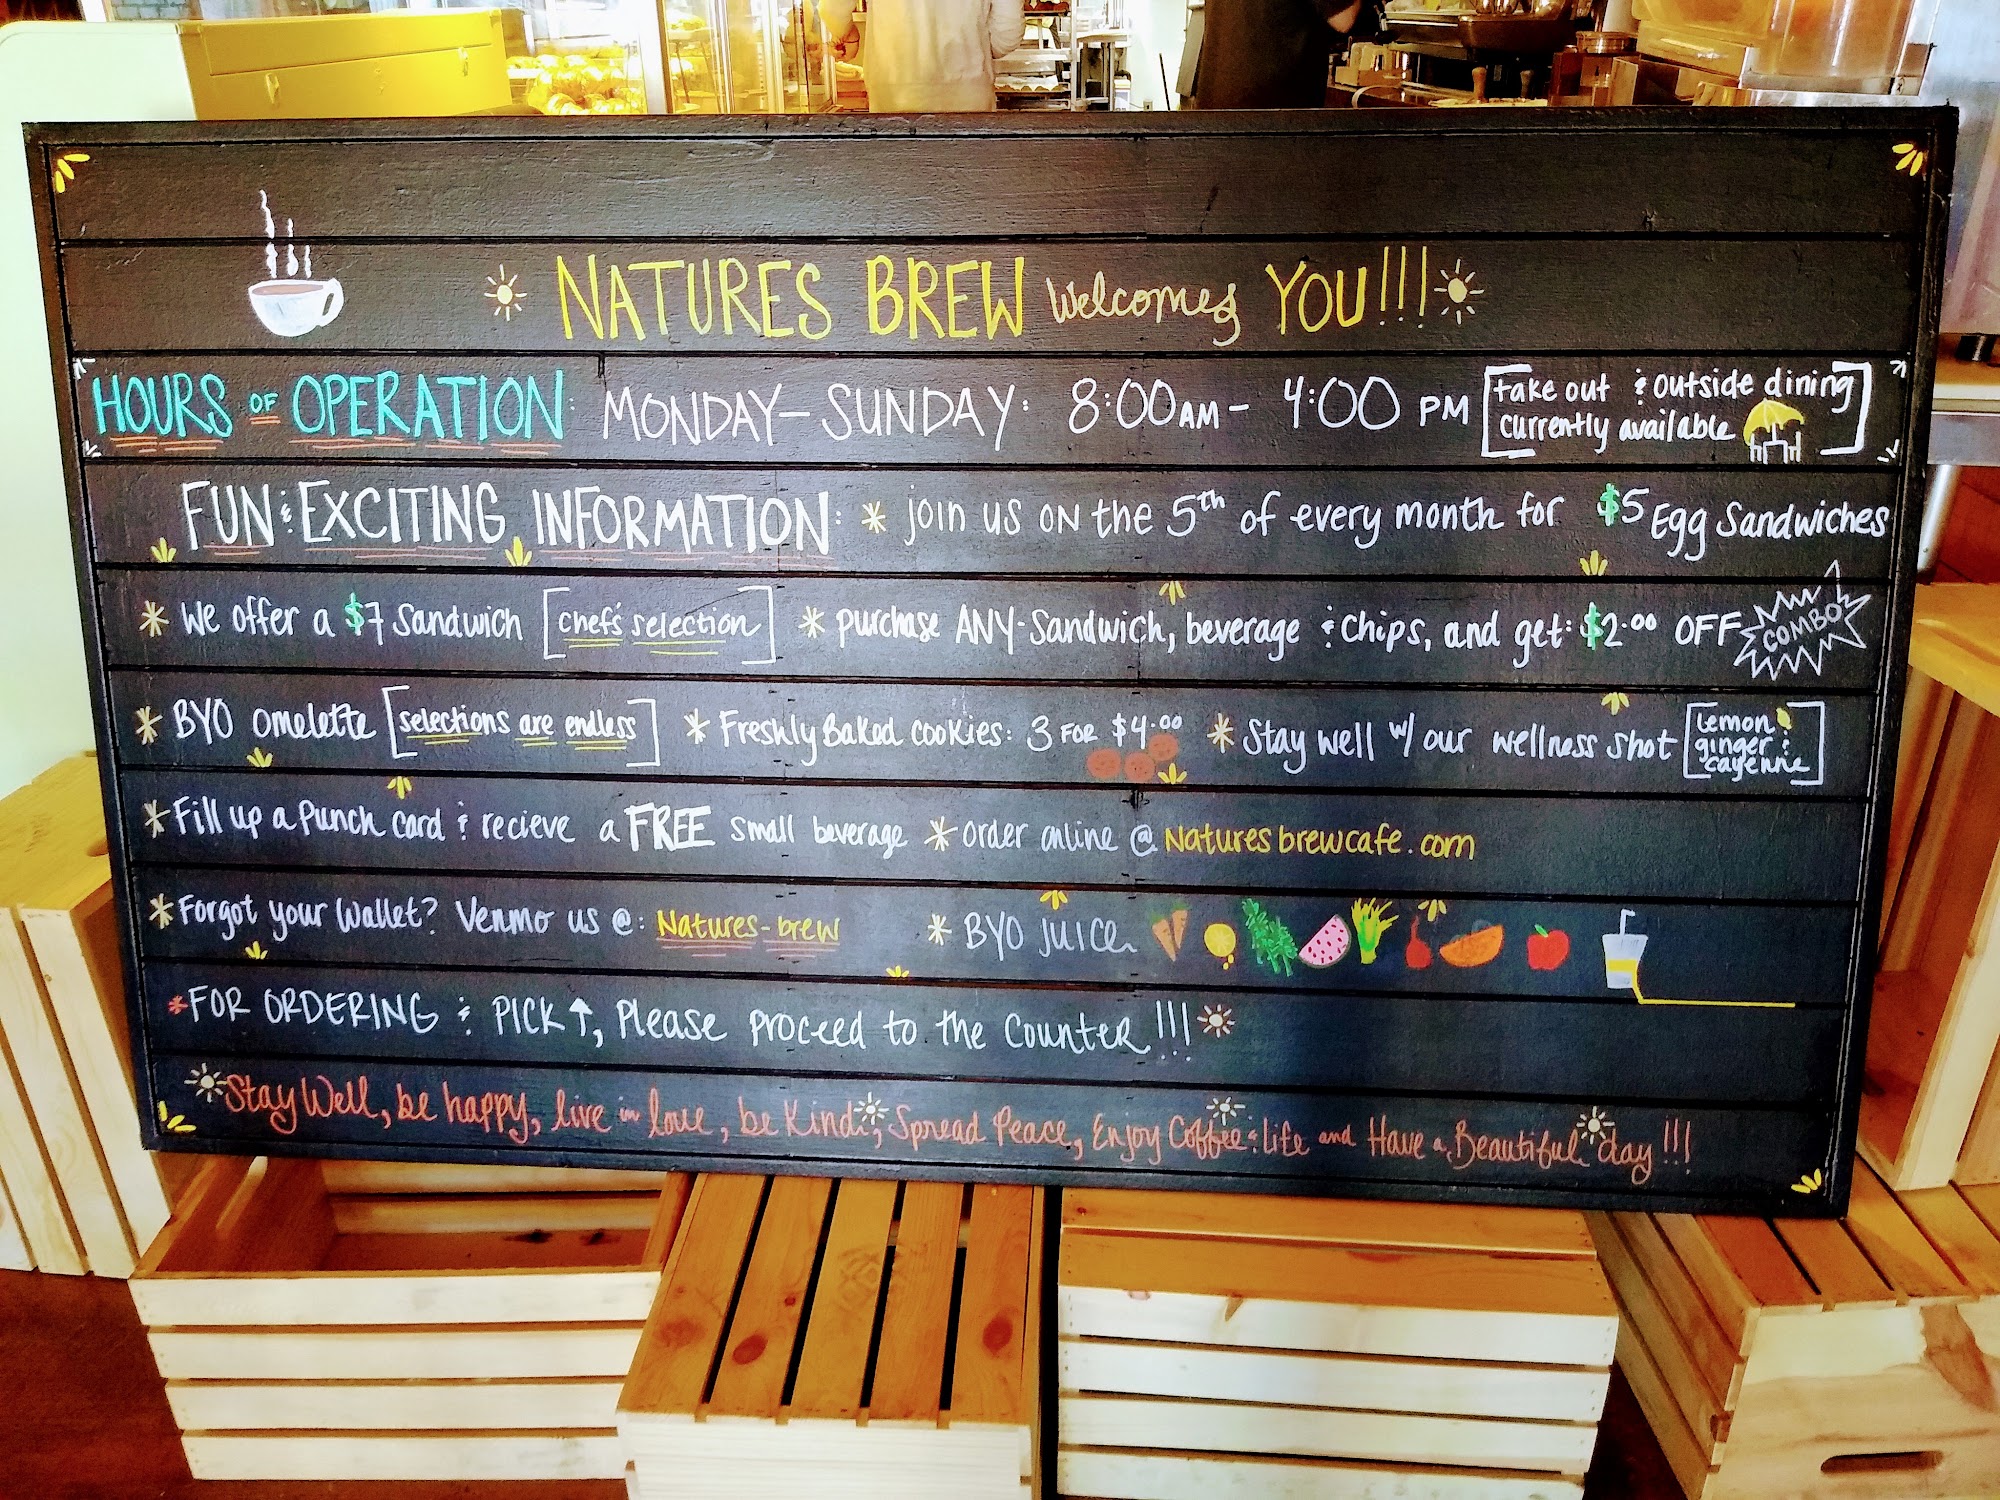 NATURES BREW welcomes YOU!!!
HOURS OF OPERATION: MONDAY-SUNDAY: 8:00AM- 4:00 PM [take out & outside dining
currently available]
FUN & EXCITING INFORMATION: * join us on the 5th of every month for $5 Egg Sandwiches
* We offer a $7 Sandwich [chef's selection] * purchase ANY-Sandwich, beverage & chips, and get: $2.00 OFF COMBO
* BYO omelette [selections are endless] * Freshly Baked cookies: 3 FOR $4.00 * Stay well w/ our wellness shot [lemon
ginger &
cayenne]
* Fill up a Punch card & recieve a FREE small beverage * order online @ Naturesbrewcafe.com
* Forgot your wallet? Venmo us @: Natures-brew * BYO juice
* FOR ORDERING & PICK↑, Please proceed to the counter!!!
Stay Well, be happy, live in love, be Kind, Spread Peace, Enjoy Coffee & Life and Have a Beautiful day!!!